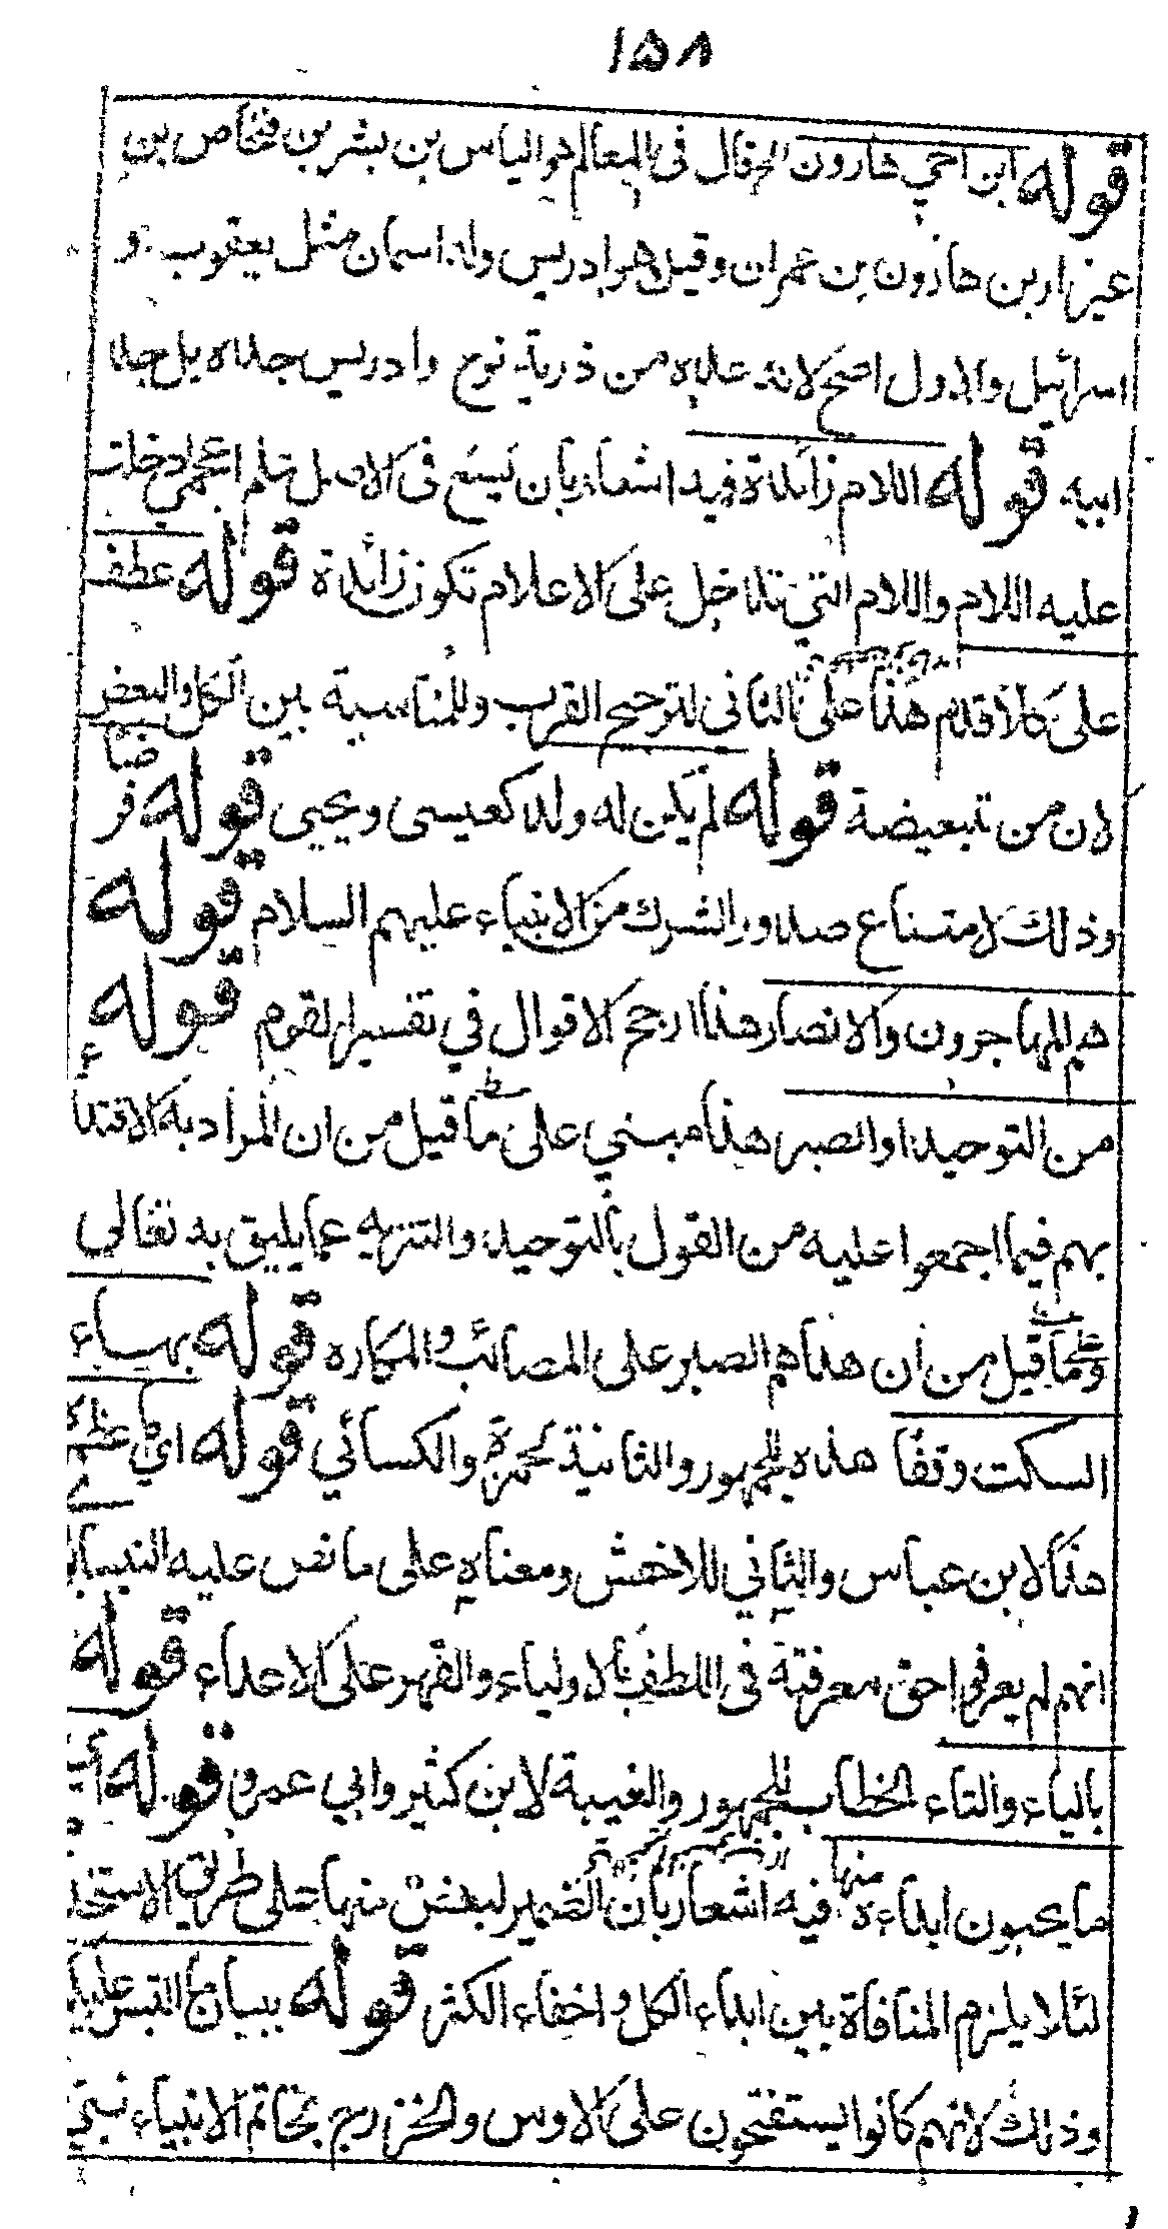 ١٥٨
قوله ابن اخي هارون الخ قال في المعالم هو الياس بن بشر بن فنخاص بن
عيزار بن هارون بن عمران وقيل هو ادريس وله اسمان مثل يعقوب و
اسرائيل والاول اصح لانه عده من ذرية نوح وادريس جده بل جد
ابيه قوله اللام زائدة فيه اشعار بان يسع في الاصل علم اعجمي ادخلت
عليه اللام واللام التي تدخل على الاعلام تكون زائدة قوله عطف
على كلا قدم هذا على الثاني لترجيح القرب وللمناسبة بين الكل والبعض
لان من تبعيضة قوله لم يكن له ولد كعيسى ويحيى قوله فرضا
وذلك لامتناع صدور الشرك من الانبياء عليهم السلام قوله
هم المهاجرون والانصار هذا ارجح الاقوال في تفسير القوم قوله
من التوحيد والصبر هذا مبني على ما قيل من ان المراد به الاقتداء
بهم فيما اجمعوا عليه من القول بالتوحيد والتنزيه عما يليق به تعالى
وعلى ما قيل من ان هذا هم الصبر على المصائب والمكاره قوله بهاء
السكت وقفا هذه للجمهور والثانية لحمزة والكسائي قوله اي ما عظموه
هذا لابن عباس والثاني للاخفش ومعناه على ما نص عليه النيسابوري
انهم لم يعرفوا حق معرفته في اللطف بالاولياء والقهر على الاعداء قوله
بالياء والتاء الخطاب للجمهور والغيبة لابن كثير وابي عمرو قوله اي
ما يحبون ابداءه منها فيه اشعار بان الضمير لبعض منها على طريق الاستخدام
لئلا يلزم المنافاة بين ابداء الكل واخفاء الكثر قوله ببيان ما التبس عليكم
وذلك لانهم كانوا يستفتحون على الاوس والخزرج بخاتم الانبياء نبي